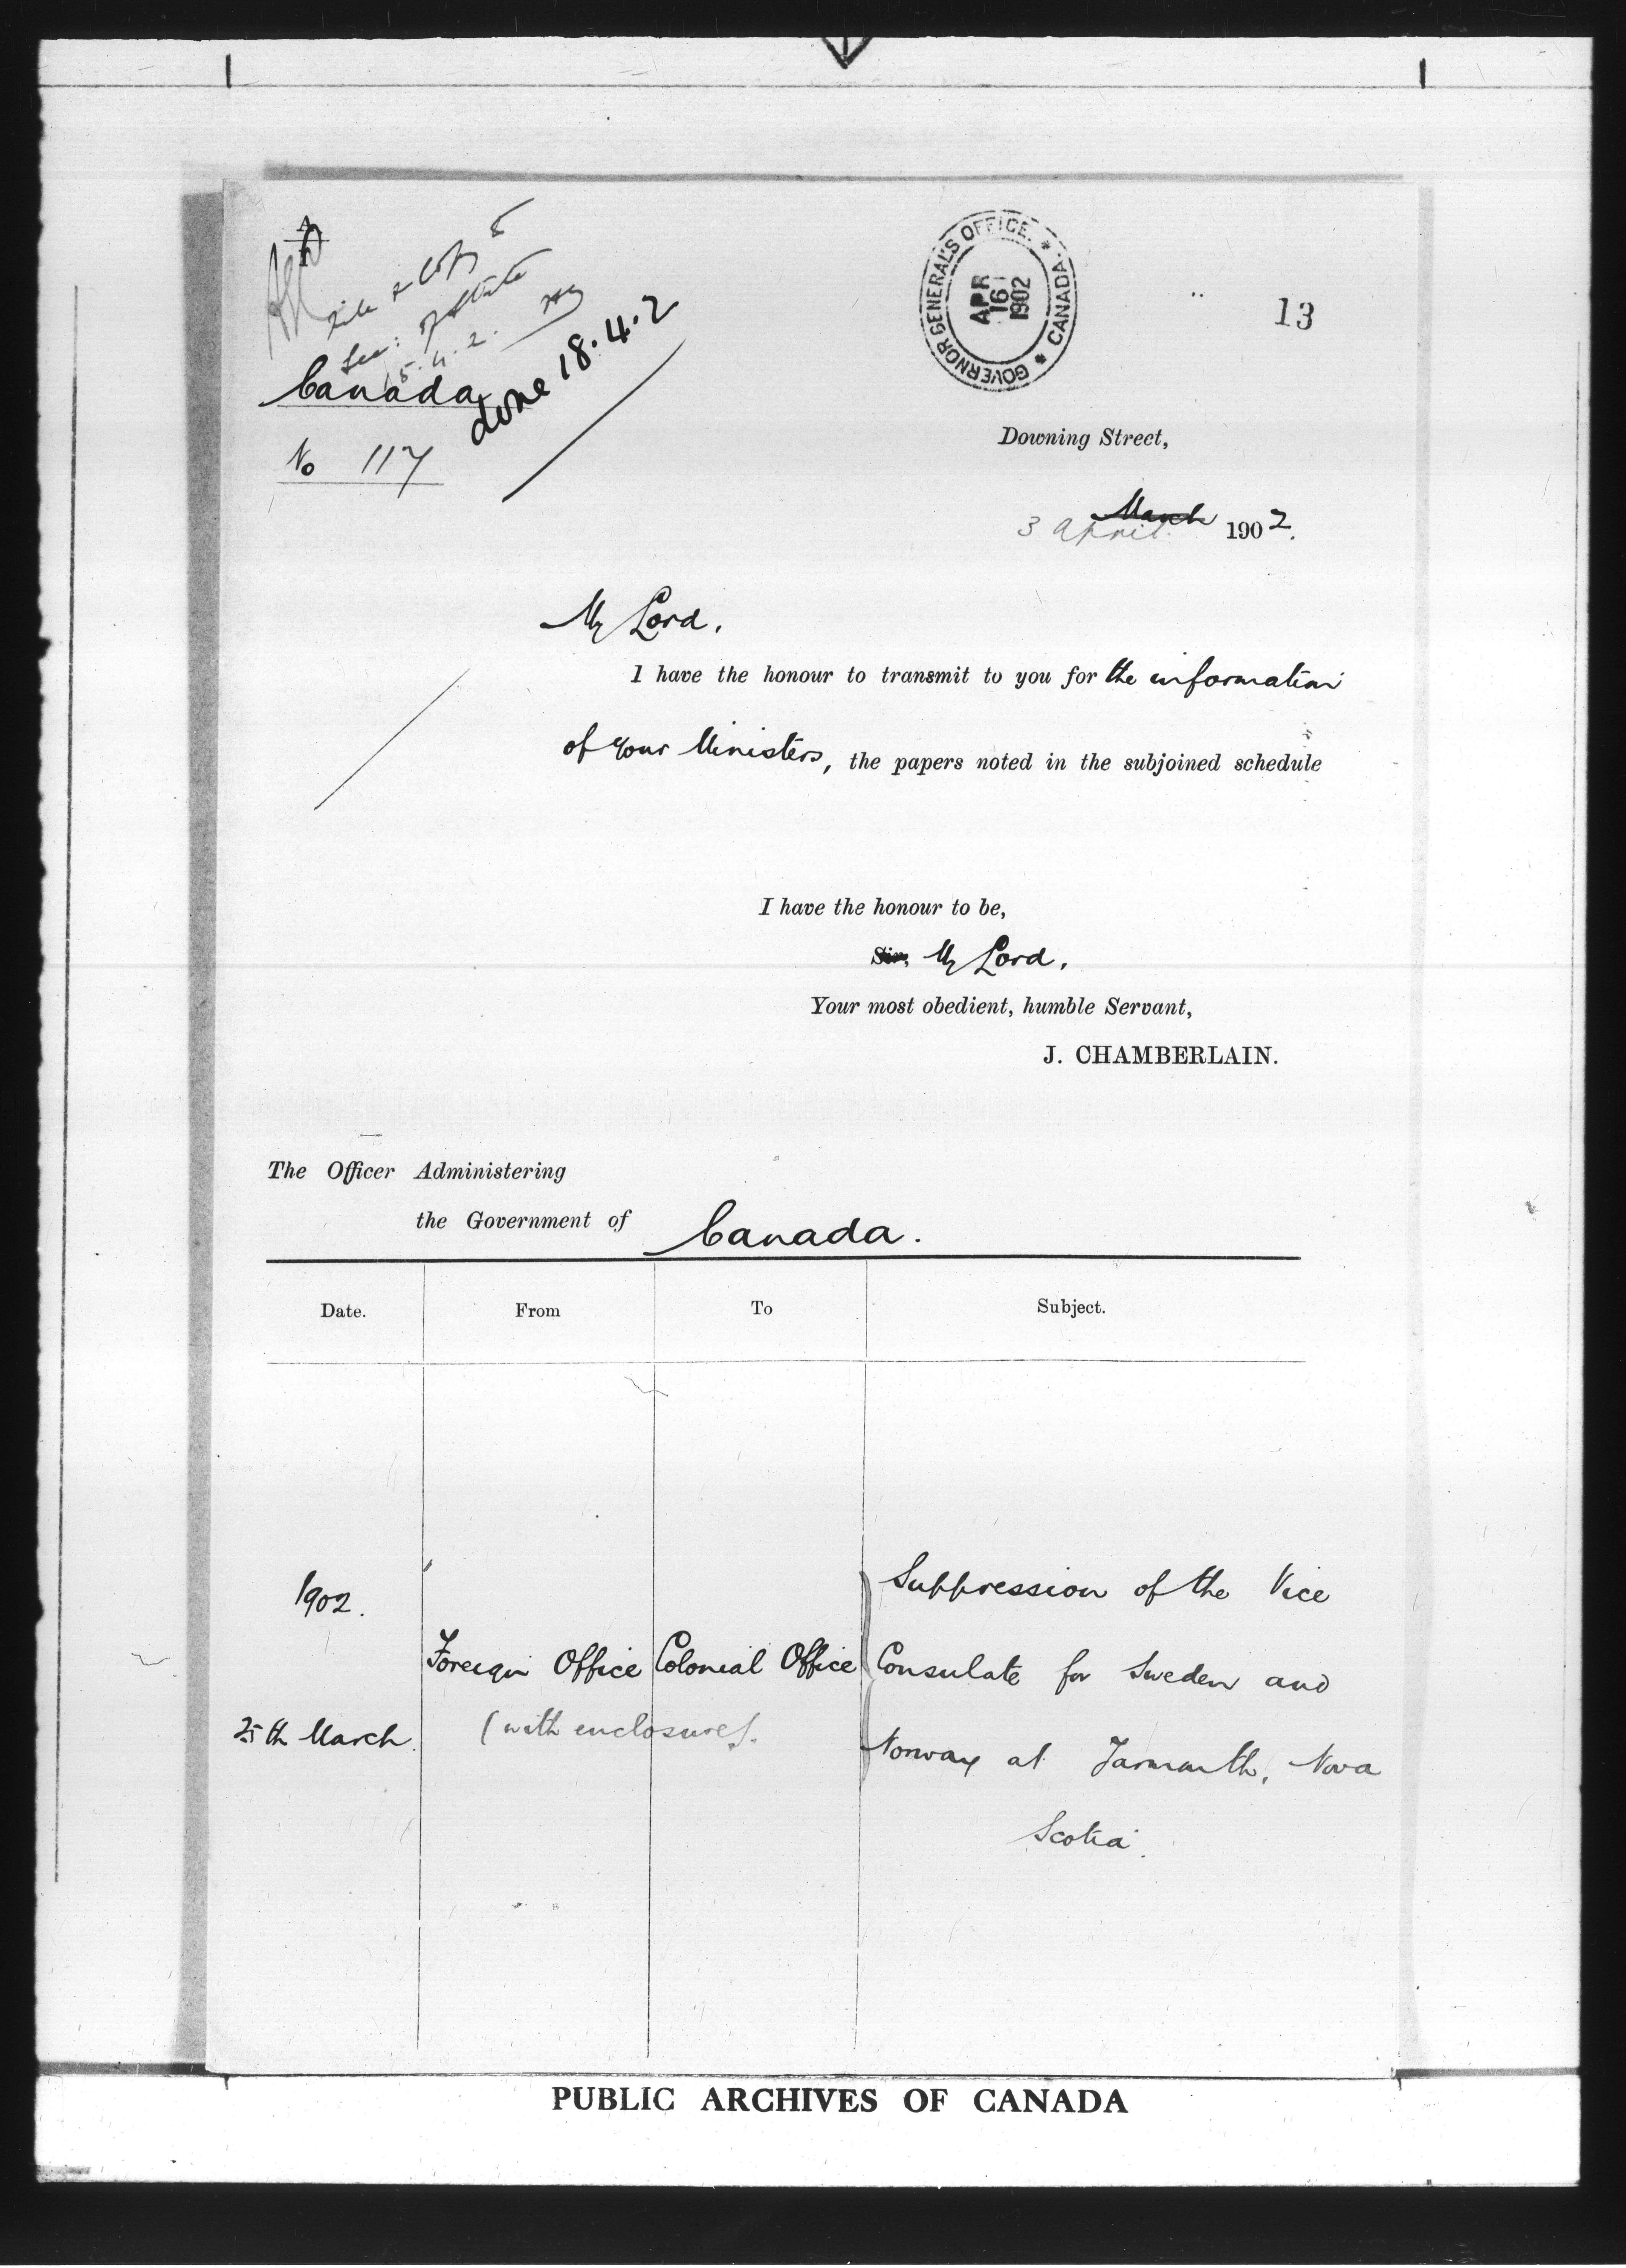 File & Copy to
Sec: of State
15.4.2.
done 18.4.2
Canada
No 117
GOVERNOR GENERAL'S OFFICE. * CANADA. *
APR
16
1902
13
Downing Street,
March
3 April 1902.
My Lord,
I have the honour to transmit to you for the information
of your Ministers, the papers noted in the subjoined schedule
I have the honour to be,
Sir, My Lord,
Your most obedient, humble Servant,
J. CHAMBERLAIN.
The Officer Administering
the Government of Canada.
Date. From To Subject.
1902.
25th March
Foreign Office
(with enclosures).
Colonial Office
Suppression of the Vice
Consulate for Sweden and
Norway at Yarmouth, Nova
Scotia.
PUBLIC ARCHIVES OF CANADA